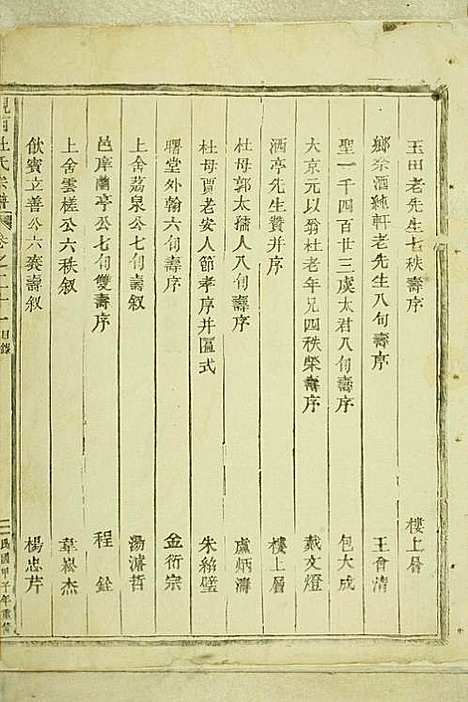 玉田老先生七秩壽序 樓上層
鄉祭酒純軒老先生八旬壽序 王會清
聖一千四百世三虞太君八旬壽序 包大成
大京元以翁杜老年兄四秩榮壽序 戴文燈
酒亭先生贊并序 樓上層
杜母郭太孺人八旬壽序 盧炳濤
杜母賈老安人節孝序并匾式 朱紹璧
曙堂外翰六旬壽序 金衍宗
上舍荔泉公七旬壽叙 湯濬哲
邑庠蘭亭公七旬雙壽序 程銓
上舍雲槎公六秩壽叙 韋崧杰
飲賓立善公六袠壽叙 楊忠芹
杜氏宗譜 卷之二十一 目錄 二 民國甲子年重修